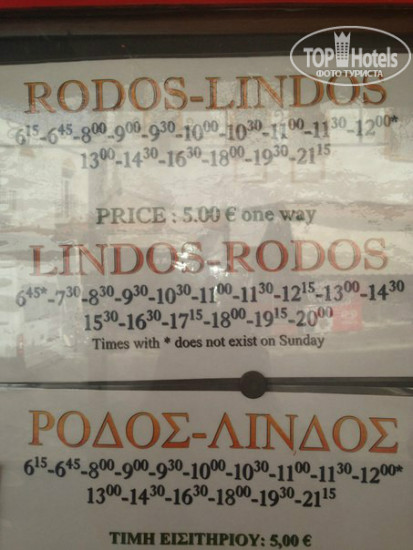 TOP Hotels
ФОТО ТУРИСТА
RODOS-LINDOS
6¹⁵-6⁴⁵-8⁰⁰-9⁰⁰-9³⁰-10⁰⁰-10³⁰-11⁰⁰-11³⁰-12⁰⁰*
13⁰⁰-14³⁰-16³⁰-18⁰⁰-19³⁰-21¹⁵
PRICE : 5.00 € one way
LINDOS-RODOS
6⁴⁵*-7³⁰-8³⁰-9³⁰-10³⁰-11⁰⁰-11³⁰-12¹⁵-13⁰⁰-14³⁰
15³⁰-16³⁰-17¹⁵-18⁰⁰-19¹⁵-20⁰⁰
Times with * does not exist on Sunday
ΡΟΔΟΣ-ΛΙΝΔΟΣ
6¹⁵-6⁴⁵-8⁰⁰-9⁰⁰-9³⁰-10⁰⁰-10³⁰-11⁰⁰-11³⁰-12⁰⁰*
13⁰⁰-14³⁰-16³⁰-18⁰⁰-19³⁰-21¹⁵
ΤΙΜΗ ΕΙΣΙΤΗΡΙΟΥ: 5,00 €